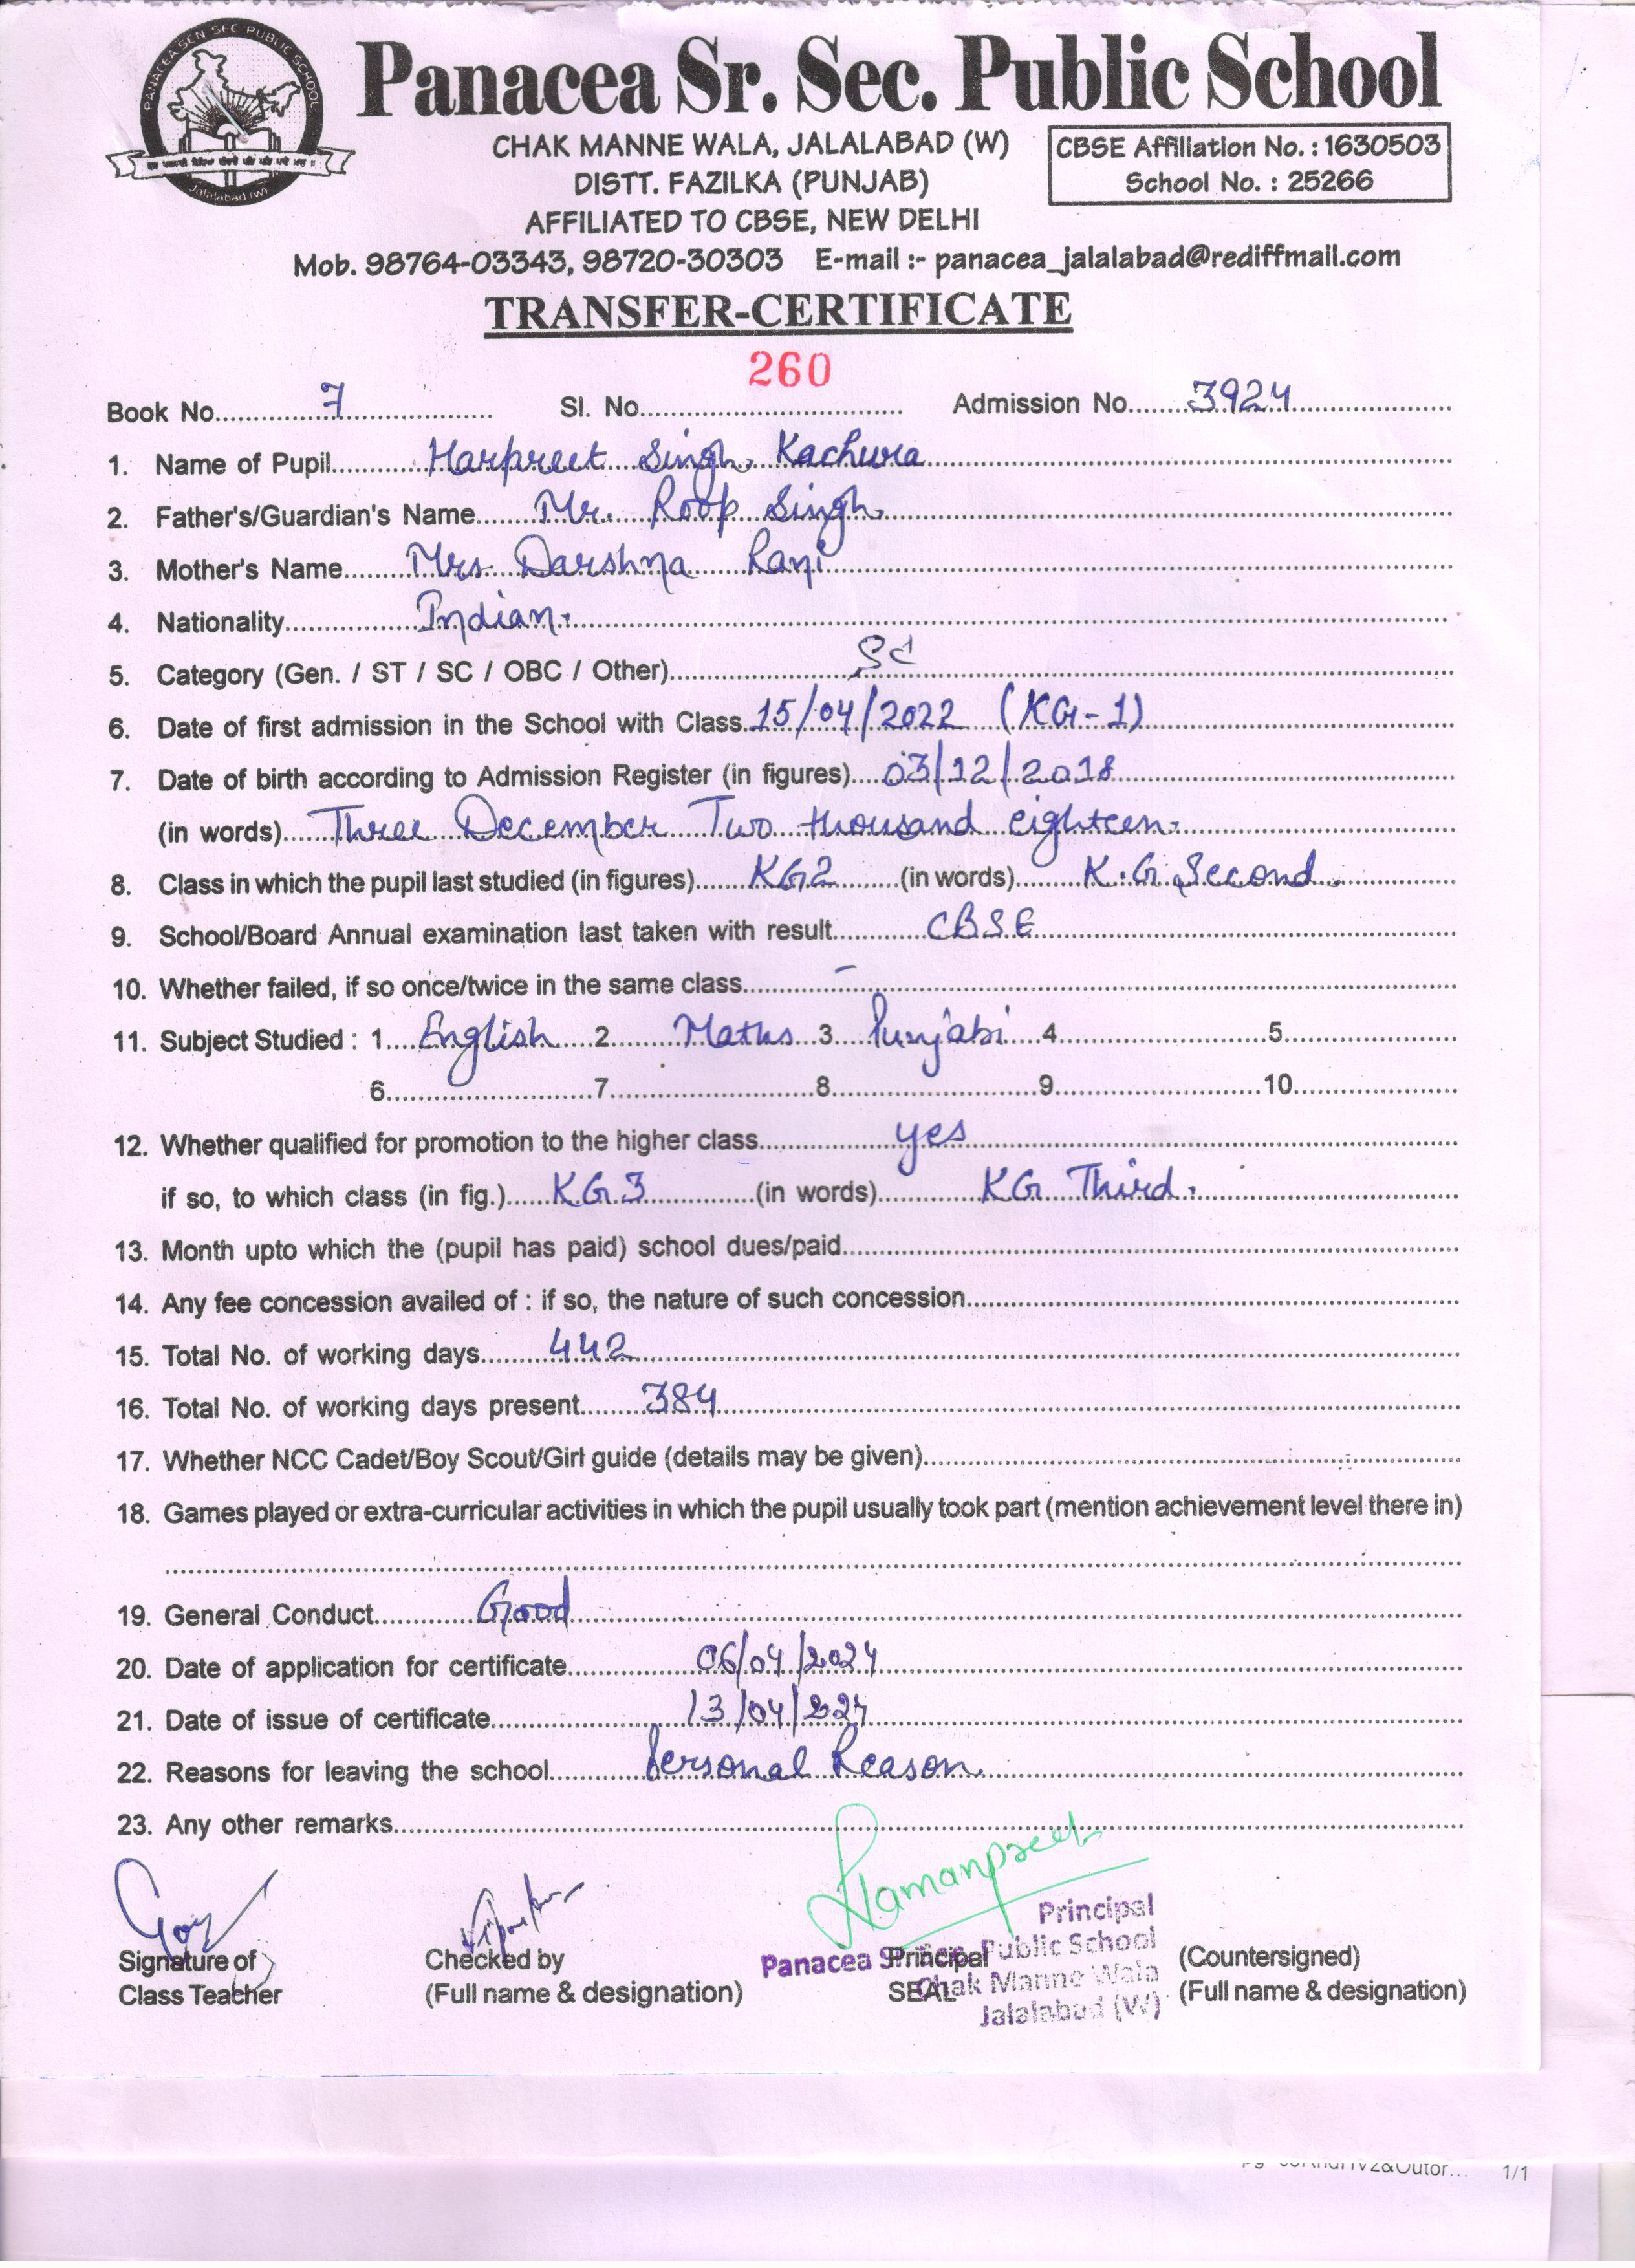 PANACEA SEN SEC PUBLIC SCHOOL
Jalalabad (W)
Panacea Sr. Sec. Public School
CHAK MANNE WALA, JALALABAD (W)
DISTT. FAZILKA (PUNJAB)
AFFILIATED TO CBSE, NEW DELHI
CBSE Affiliation No. : 1630503
School No. : 25266
Mob. 98764-03343, 98720-30303 E-mail :- panacea_jalalabad@rediffmail.com
TRANSFER-CERTIFICATE
260
Book No. 7 Sl. No. Admission No. 3924
1. Name of Pupil Harpreet Singh Kachura
2. Father's/Guardian's Name Mr. Roop Singh
3. Mother's Name Mrs Darshna Rani
4. Nationality Indian.
5. Category (Gen. / ST / SC / OBC / Other) SC
6. Date of first admission in the School with Class 15/04/2022 (KG-1)
7. Date of birth according to Admission Register (in figures) 03/12/2018
(in words) Three December Two thousand eighteen.
8. Class in which the pupil last studied (in figures) KG2 (in words) K.G Second.
9. School/Board Annual examination last taken with result CBSE
10. Whether failed, if so once/twice in the same class –
11. Subject Studied : 1 English 2 Maths 3 Punjabi 4 5
6 7 8 9 10
12. Whether qualified for promotion to the higher class yes
if so, to which class (in fig.) KG3 (in words) KG Third.
13. Month upto which the (pupil has paid) school dues/paid
14. Any fee concession availed of : if so, the nature of such concession
15. Total No. of working days 442
16. Total No. of working days present 384
17. Whether NCC Cadet/Boy Scout/Girl guide (details may be given)
18. Games played or extra-curricular activities in which the pupil usually took part (mention achievement level there in)
19. General Conduct Good
20. Date of application for certificate 06/04/2024
21. Date of issue of certificate 13/04/2024
22. Reasons for leaving the school Personal Reason.
23. Any other remarks
Ramanpreet
Principal
Panacea Sr. Sec. Public School
Chak Manne Wala
Jalalabad (W)
Signature of Checked by Principal (Countersigned)
Class Teacher (Full name & designation) SEAL (Full name & designation)
1/1